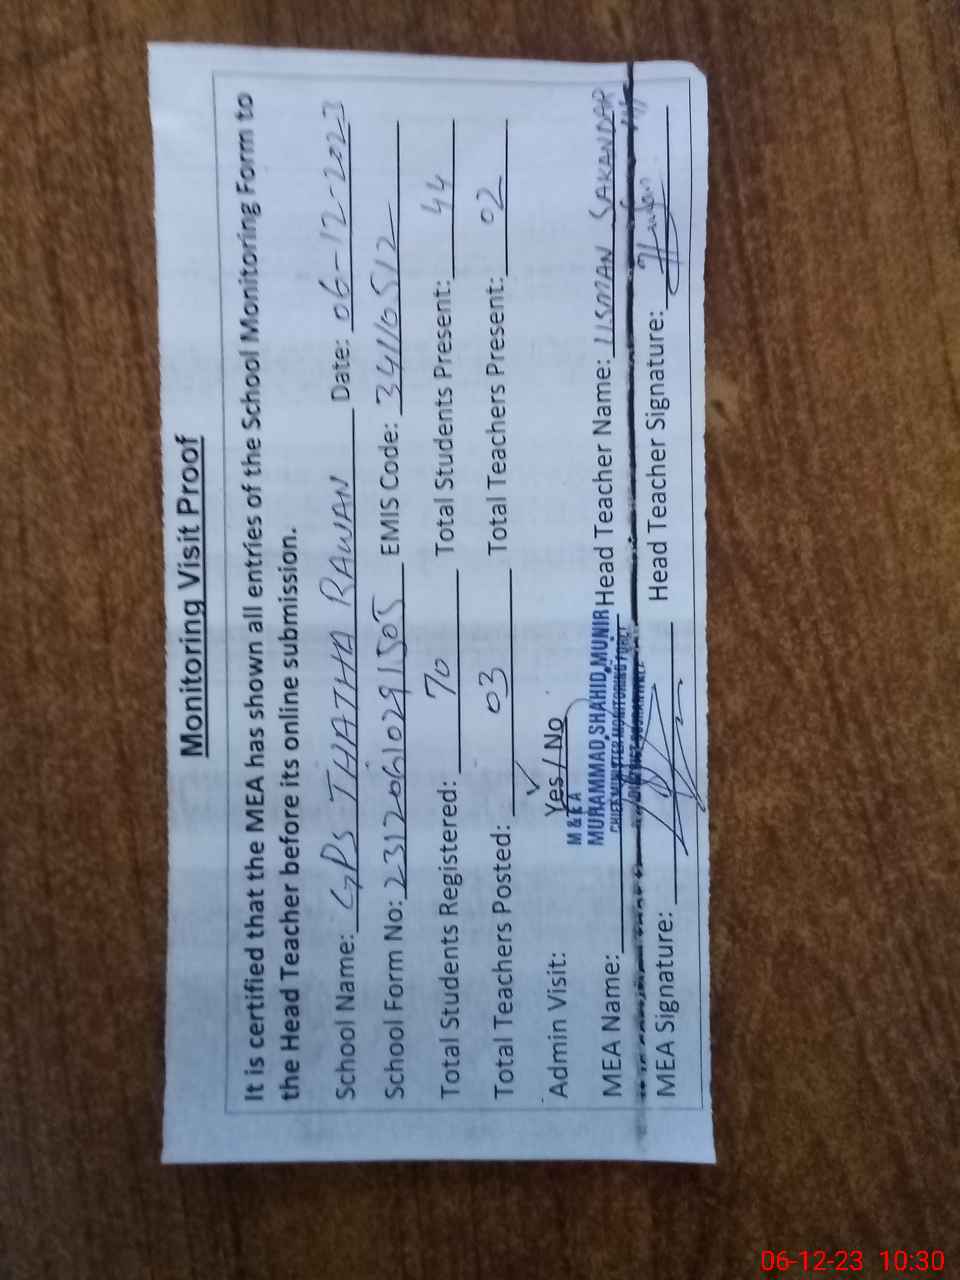 Monitoring Visit Proof
It is certified that the MEA has shown all entries of the School Monitoring Form to
the Head Teacher before its online submission.
School Name: GPS JHATHA RAWAN Date: 06-12-2023
School Form No: 23120610291505 EMIS Code: 34110512
Total Students Registered: 70 Total Students Present: 44
Total Teachers Posted: 03 Total Teachers Present: 02
Admin Visit: Yes / No
M & E A
MEA Name: MUHAMMAD SHAHID MUNIR Head Teacher Name: USMAN SAKANDAR
CHIEF MINISTER MONITORING FORCE
MEA Signature: Head Teacher Signature:
06-12-23 10:30